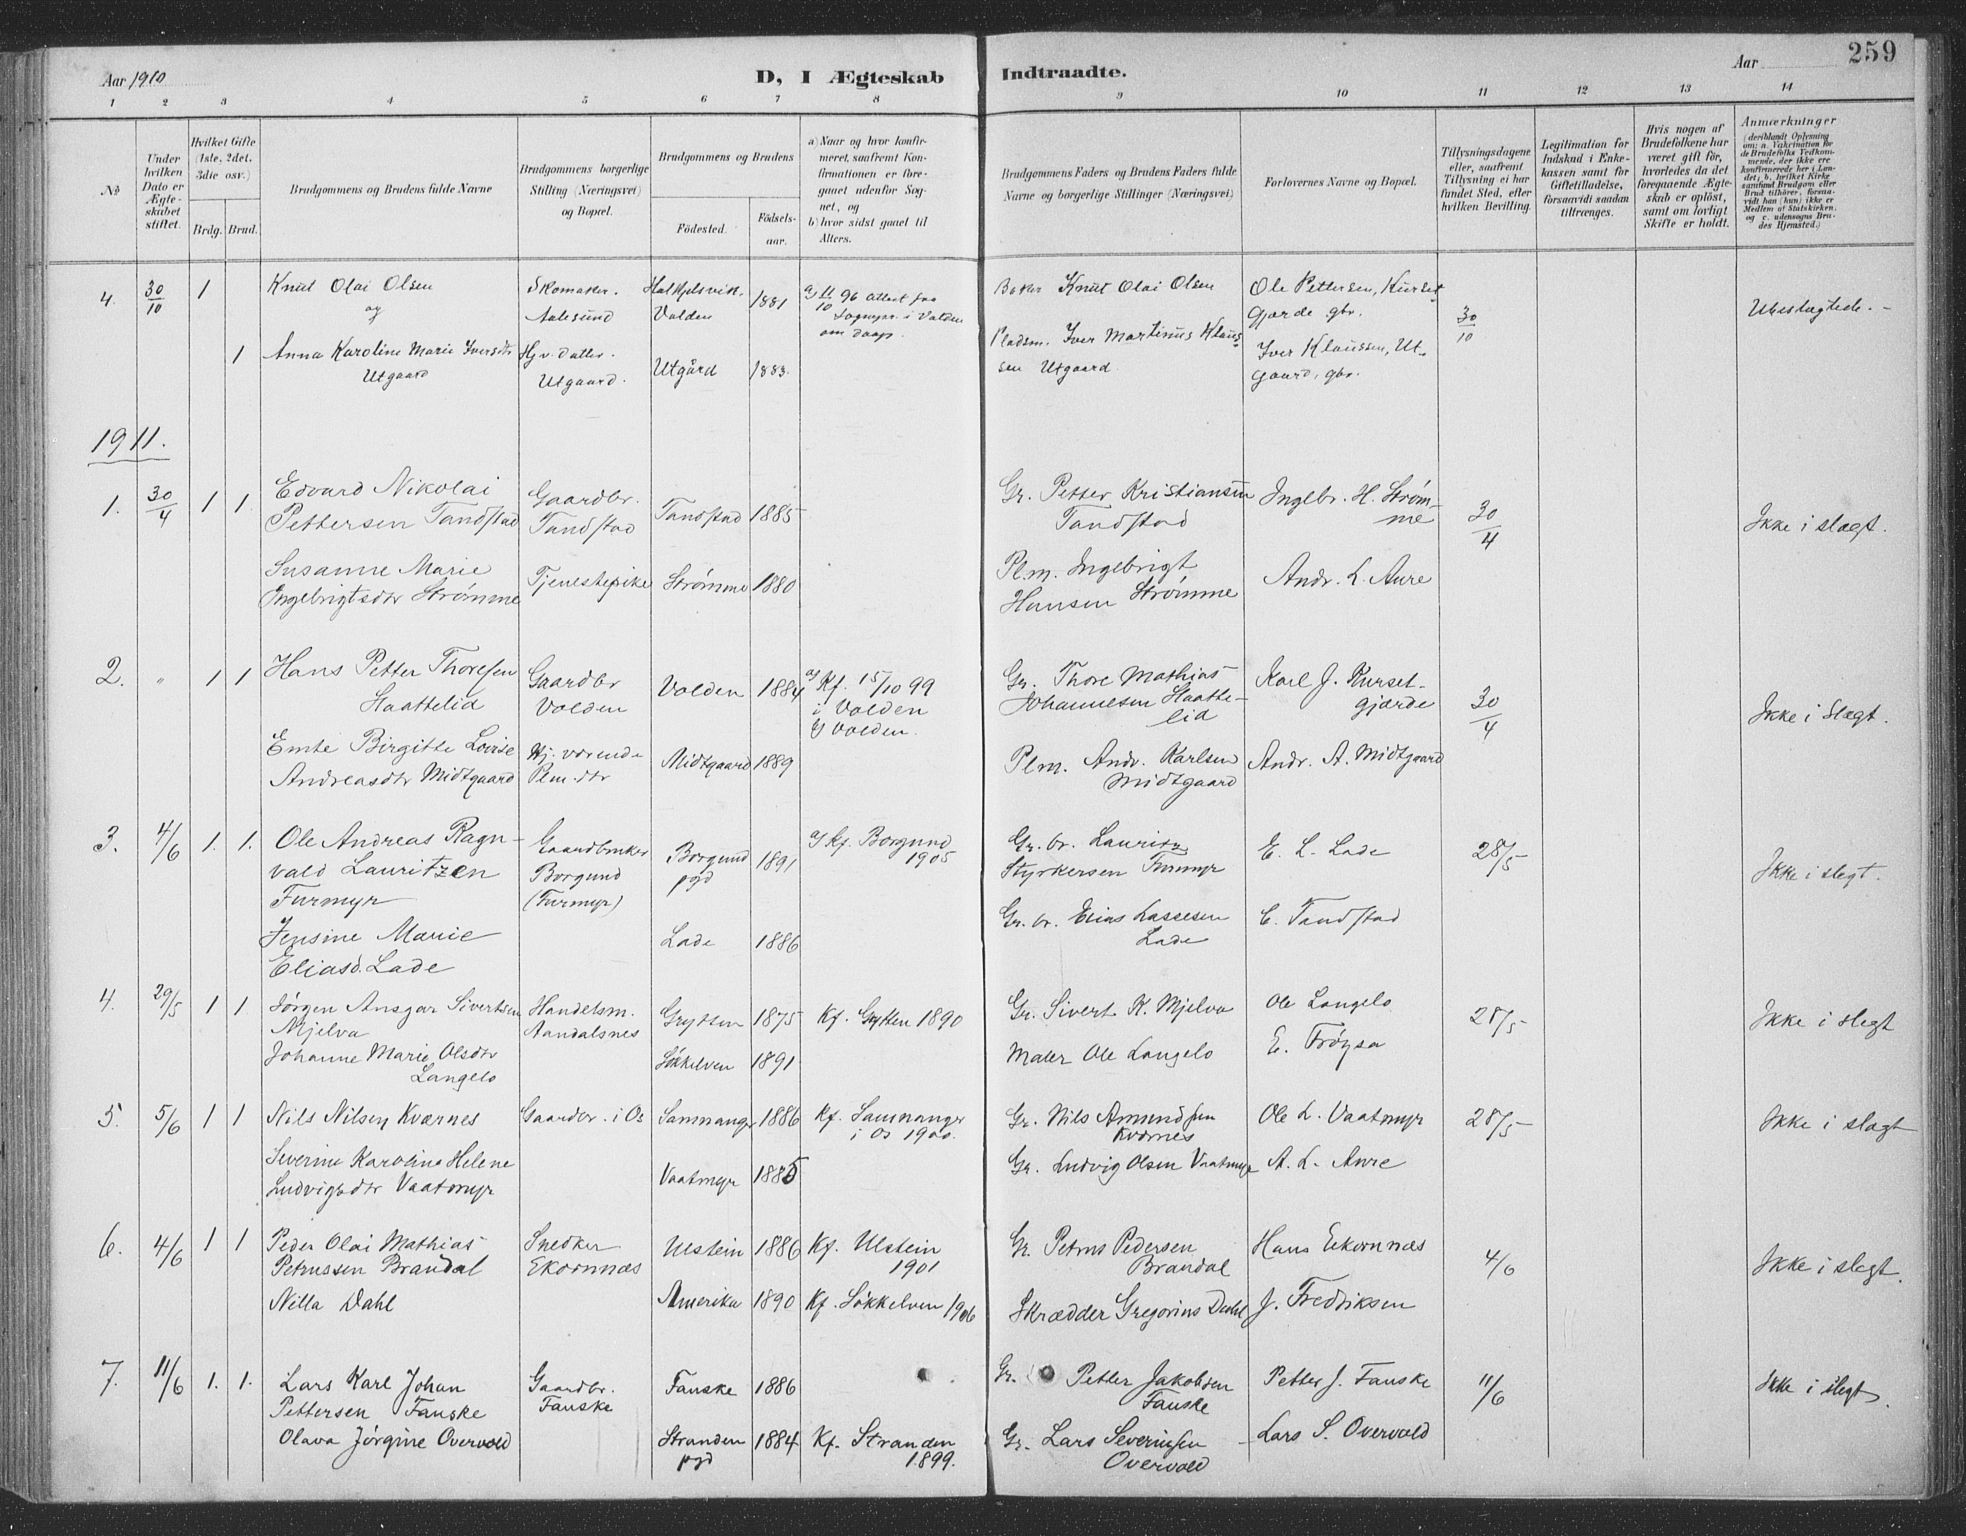 Aar 1910
D, I Ægteskab
Indtraadte.
Aar
259
1 2 3 4 5 6 7 8 9 10 11 12 13 14
No
Under
hvilken
Dato er
Ægte-
skabet
stiftet.
Hvilket Gifte
(1ste, 2det,
3die osv.)
Brdg. Brud.
Brudgommens og Brudens fulde Navne
Brudgommens borgerlige
Stilling (Næringsvei)
og Bopæl.
Brudgommens og Brudens
Fødested.
Fødsels-
aar.
a) Naar og hvor konfir-
meret, saafremt Kon-
firmationen er fore-
gaaet udenfor Sog-
net, og
b) hvor sidst gaaet til
Alters.
Brudgommens Faders og Brudens Faders fulde
Navne og borgerlige Stillinger (Næringsvei)
Forlovernes Navne og Bopæl.
Tillysningsdagene
eller, saafremt
Tillysning ei har
fundet Sted, efter
hvilken Bevilling.
Legitimation for
Indskud i Enke-
kassen samt for
Giftetilladelse,
forsaavidt saadan
tiltrænges.
Hvis nogen af
Brudefolkene har
været gift før,
hvorledes da det
foregaaende Ægte-
skab er opløst,
samt om lovligt
Skifte er holdt.
Anmærkninger
(deriblandt Oplysning
om: a. Vakcination for
de Brudefolks Vedkom-
mende, der ikke ere
konfirmerede her i Lan-
det, b. hvilket Kirke
samfund Brudgom eller
Brud tilhører, forsaa-
vidt han (hun) ikke er
Medlem af Statskirken,
og c. udensogns Bru-
des Hjemsted.)
4. 30/10 1
Knut Olai Olsen
og
Skomaker.
Aalesund
Volden
1881
a) 11/10 96 attest fra
Sognepr. i Volden
om daap.
Baker Knut Olai Olsen
Ole Pettersen, Kurset-
gjærde gbr.
30/10
Ubeslægtede.-
1
Anna Karoline Marie Iversdtr
Utgaard
Hjv. datter.
Utgaard.
Utgård
1883.
Pladsm. Iver Martinus Klaus-
sen Utgaard.
Iver Klaussen, Ut-
gaard, gbr.
1911.
1. 30/4 1 1
Edvard Nikolai
Pettersen Tandstad
Gaardbr.
Tandstad
Tandstad 1885
Gr. Petter Kristiansen
Tandstad
Ingebr. H. Strøm-
me
30/4
Ikke i slægt.
Susanne Marie
Ingebrigtsdtr Strømme
Tjenestepike
Strømme 1880
Plm. Ingebrigt
Hansen Strømme
Andr. L. Aure
2. " 1 1
Hans Petter Thoresen
Haattelid
Gaardbr
Volden
Volden 1884
a) Kf. 15/10 99
i Volden
b) Volden.
Gr. Thore Mathias
Johannesen Haatte-
lid
Karl J. Kurset-
gjærde
30/4
Ikke i Slægt.
Emte Birgitte Lovise
Andreasdtr Midtgaard
Hj. værende
Plm. dtr
Midtgaard 1889
Plm. Andr. Karlsen
Midtgaard
Andr. A. Midtgaard
3. 4/6 1. 1.
Ole Andreas Ragn-
vald Lauritzen
Furmyr
Gaardbruker
Borgund
(Furmyr)
Borgund
pgd
1891
a) Kf. Borgund
1905
Gr. br. Lauritz
Styrkersen Furmyr
E. L. Lade
28/5
Ikke i slegt.
Jensine Marie
Eliasd. Lade
Lade 1886
Gr. br. Elias Lassesen
Lade
C. Tandstad
4. 29/5 1 1
Jørgen Ansgar Sivertsen
Mjelva
Handelsm.
Aandalsnes
Grytten 1875
Kf. Grytten 1890
Gr. Sivert K. Mjelva
Ole Langelo
28/5
Ikke i slegt
Johanne Marie Olsdtr
Langelo
Søkkelven 1891
Maler Ole Langelo
E. Frøysa
5. 5/6 1 1
Nils Nilsen Kværnes
Gaardbr. i Os
Samnanger 1886
Kf. Samnanger
i Os 1900.
Gr. Nils Amundsen
Kværnes
Ole L. Vaatmyr
28/5
Ikke i slægt
Severine Karoline Helene
Ludvigsdtr Vaatmyr
Vaatmyr 1885
Gr. Ludvig Olsen Vaatmyr
A. L. Aure
6. 4/6 1 1
Peder Olai Mathias
Petrussen Brandal
Snedker
Ekornnæs
Ulstein 1886
Kf. Ulstein
1901
Gr. Petrus Pedersen
Brandal
Hans Eekornnæs
4/6
Ikke i slegt.
Nilla Dahl
Amerika 1890
Kf. Søkkelven 1906
Skrædder Gregorius Dahl
J. Fredriksen
7. 11/6 1. 1.
Lars Karl Johan
Pettersen Fauske
Gaardbr.
Fauske
Fauske 1886
Gr. Petter Jakobsen
Fauske
Petter J. Fauske
11/6
Ikke i slegt.
Olava Jørgine Overvold
Stranden
pgd
1884
Kf. Stranden
1899.
Gr. Lars Severinsen
Overvold
Lars S. Overvold